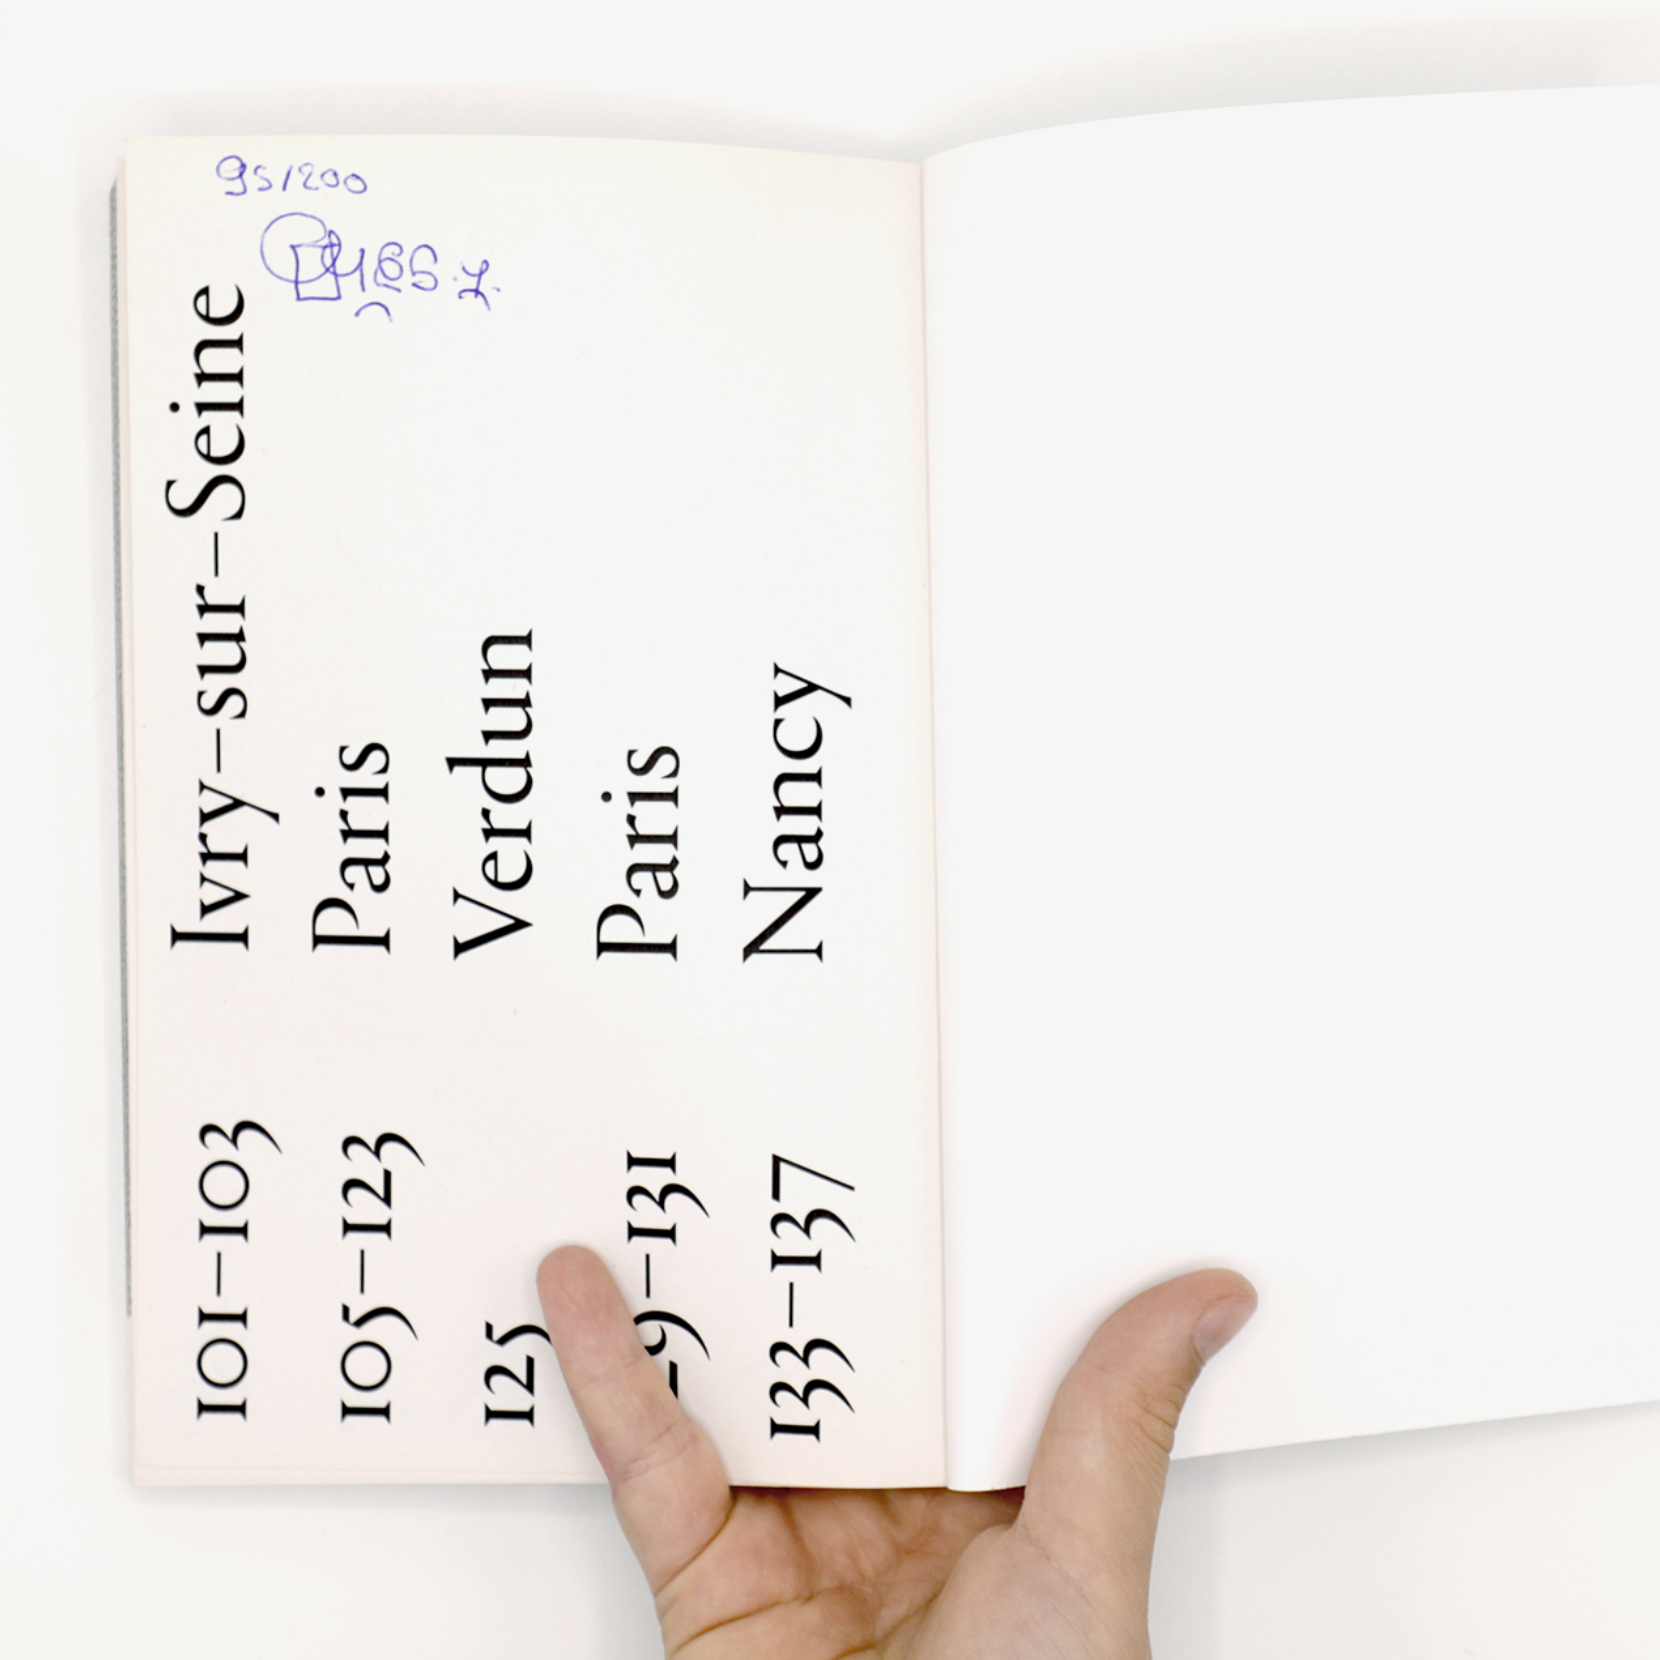 95/200
101–103 Ivry-sur-Seine
105–123 Paris
125 Verdun
29–131 Paris
133–137 Nancy